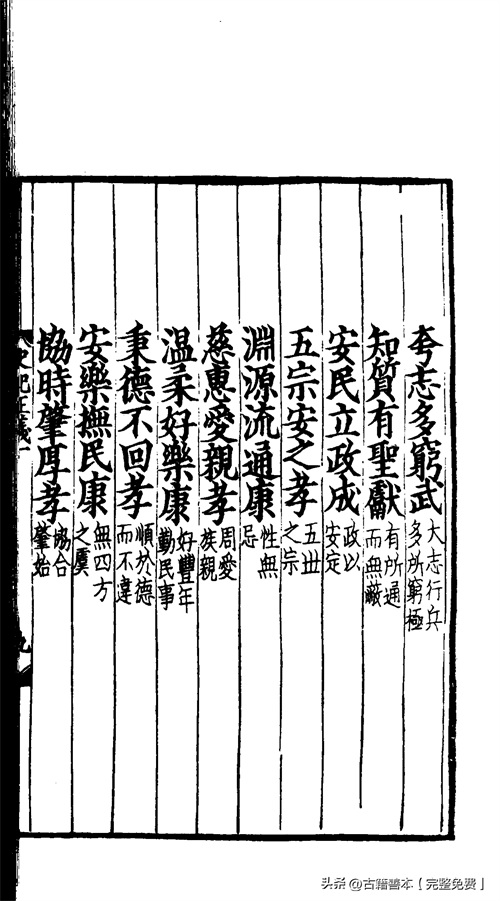 夸志多窮武大志行兵多所窮極
知質有聖獻有所通而無蔽
安民立政成政以安定
五宗安之孝五丗之宗
淵源流通康性無忌
慈惠愛親孝周愛族親
温柔好樂康好豐年勤民事
秉德不回孝順於德而不違
安樂撫民康無四方之虞
協時肇厚孝協合肇始
头条 @古籍善本【完整免费】